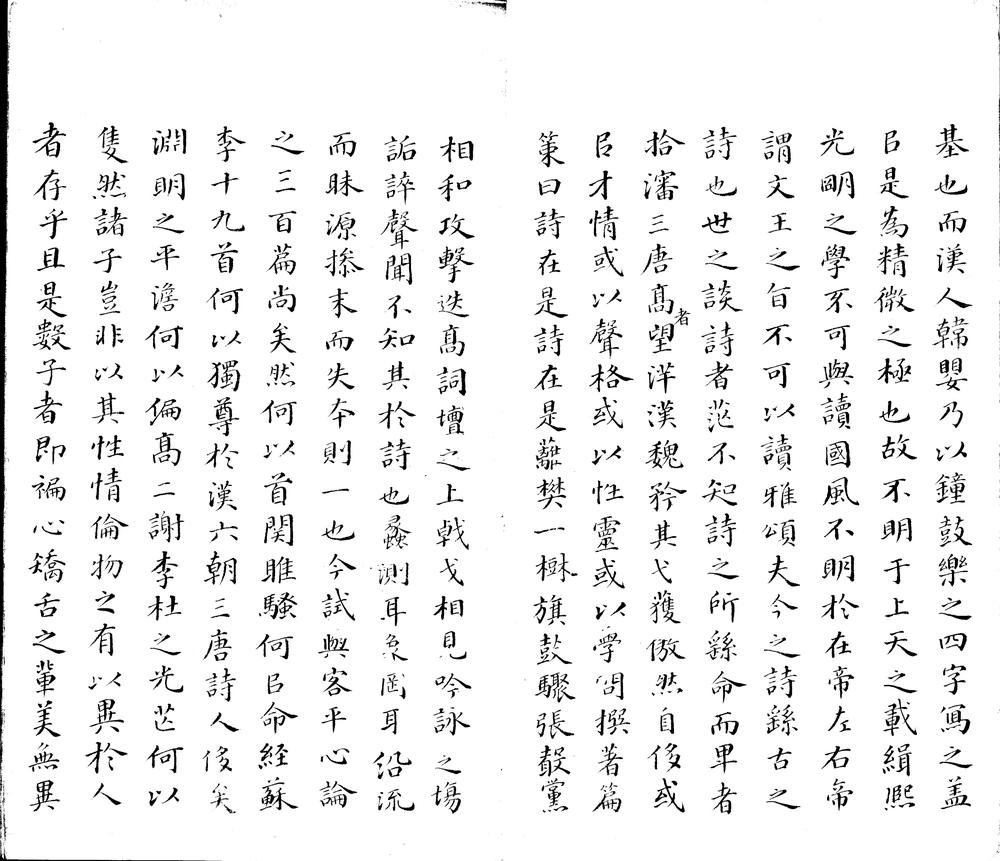 基也而漢人韓嬰乃以鐘鼓樂之四字寫之盖
㠯是為精微之極也故不明于上天之載緝熈
光明之學不可與讀國風不明於在帝左右帝
謂文王之旨不可以讀雅頌夫今之詩繇古之
詩也世之談詩者茫不知詩之所繇命而卑者
拾瀋三唐髙者望洋漢魏矜其弋獲傲然自侈或
㠯才情或以聲格或以性靈或以學問撰著篇
䇿曰詩在是詩在是蘺樊一樹旗鼓驟張㲉黨
相和攻擊迭髙詞壇之上戟戈相見吟詠之塲
詬誶聲聞不知其於詩也蠡測耳象罔耳沿流
而昧源摻末而失夲則一也今試與客平心論
之三百萹尚矣然何以首関雎騷何㠯命經蘇
李十九首何以獨尊於漢六朝三唐詩人侈矣
淵明之平澹何以偏髙二謝李杜之光芒何以
隻然諸子豈非以其性情倫物之有以異於人
者存乎且是數子者即褊心矯舌之輩美無異